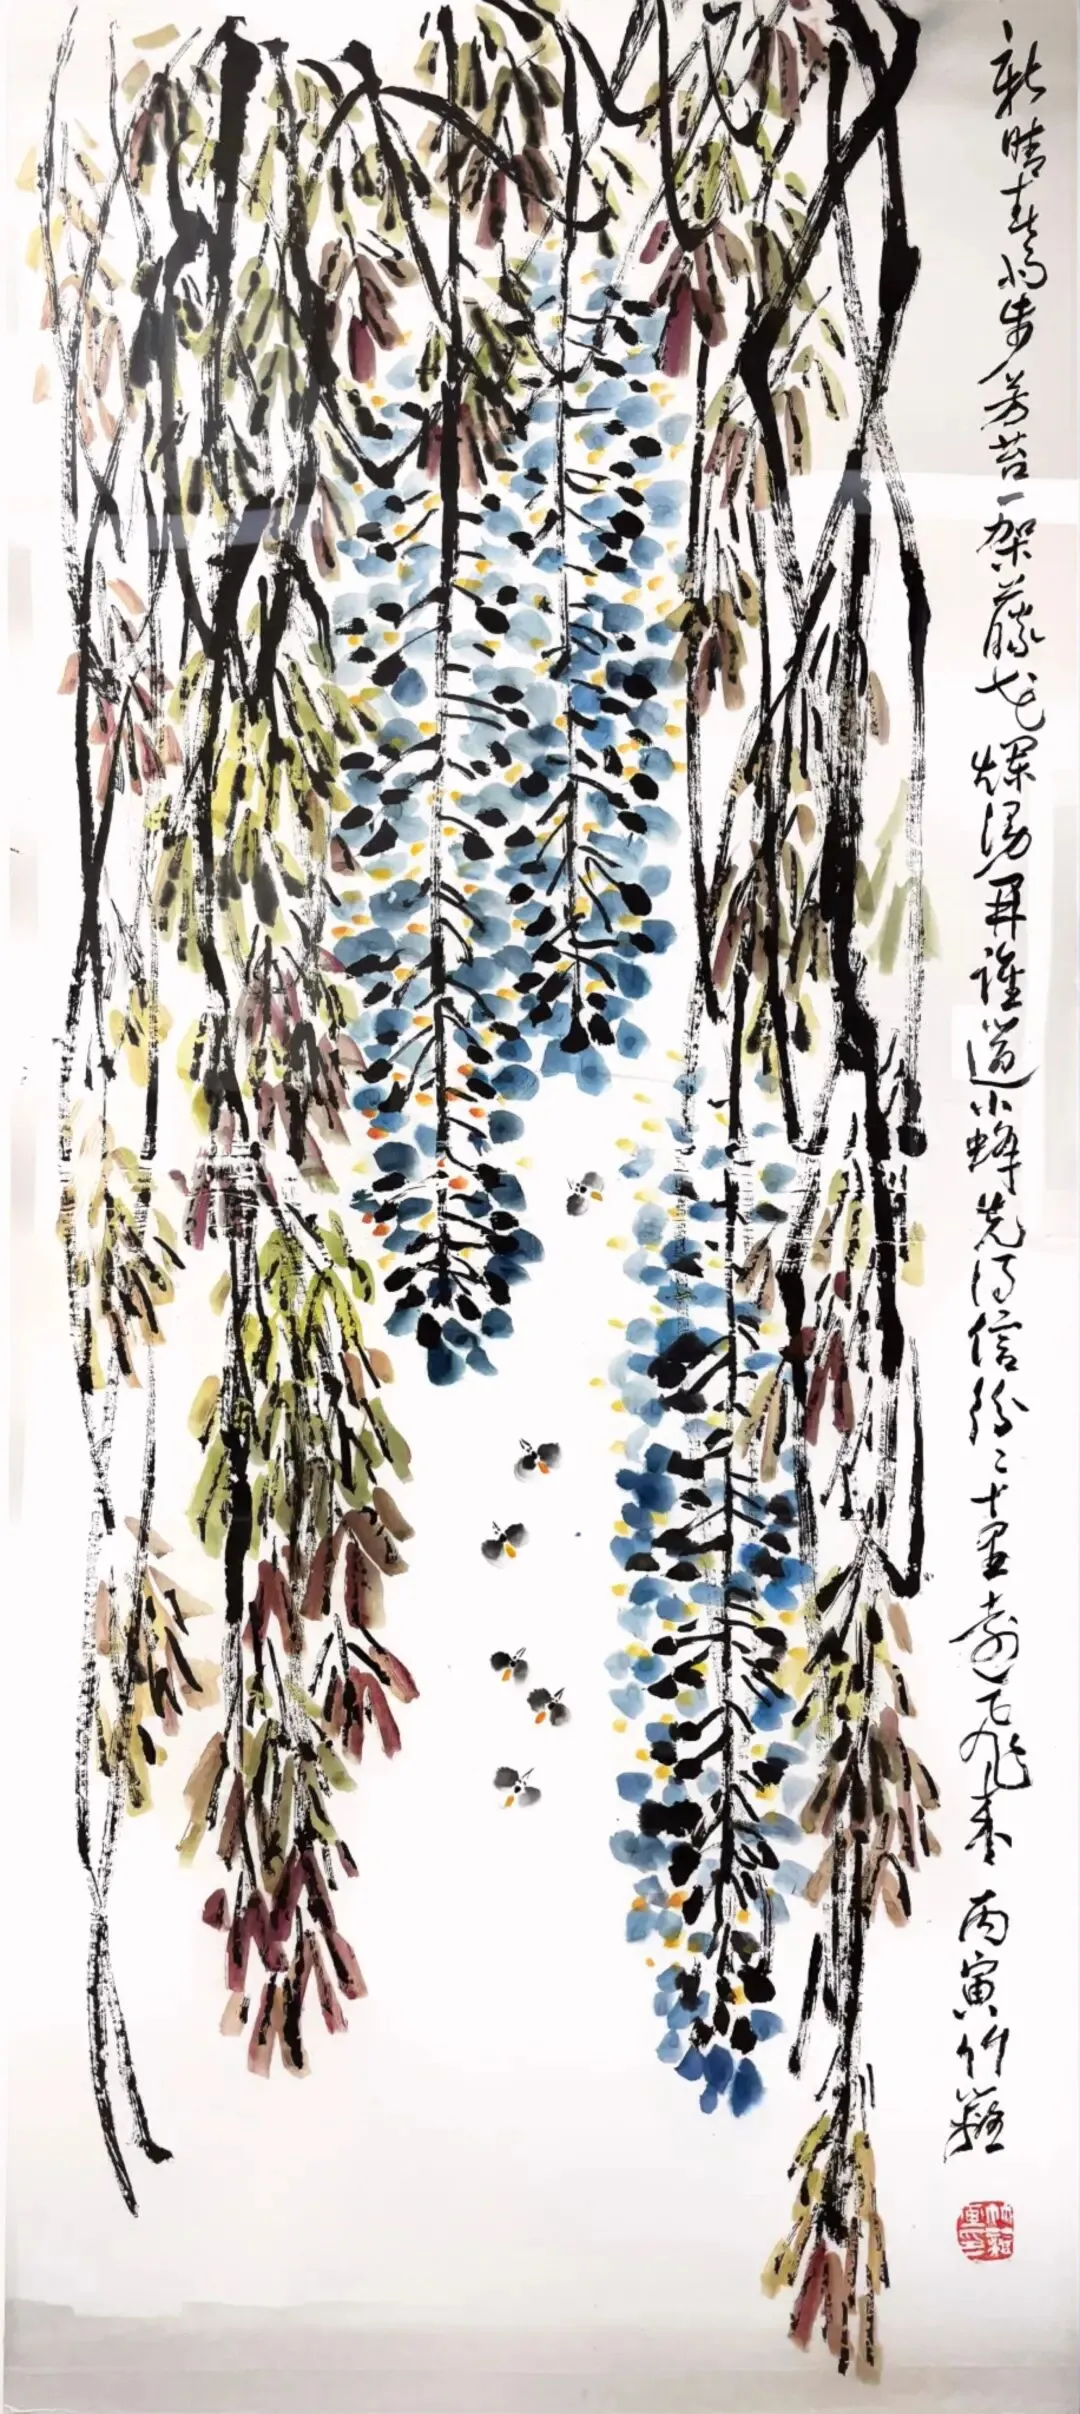 新晴春步芳苔一架藤花爛漫開誰道小蜂先得信紛〻十里遠飛來 丙寅竹